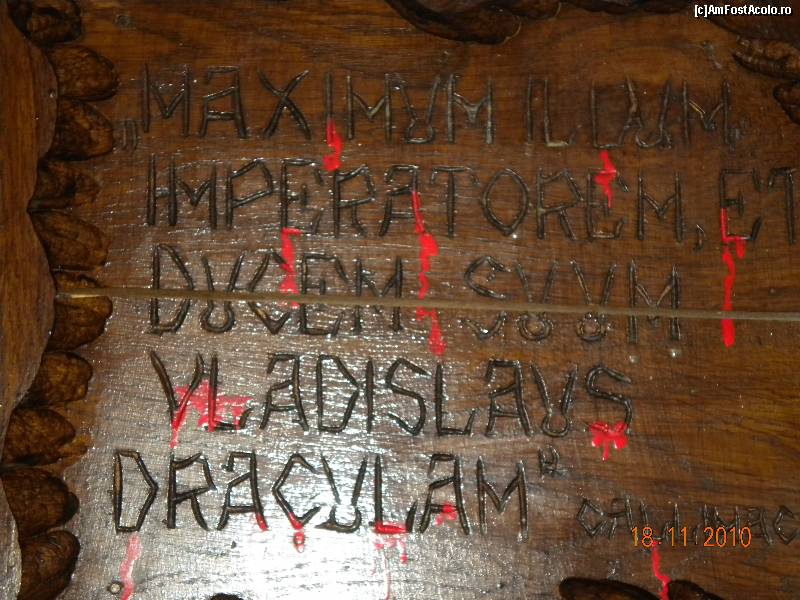 [c]AmFostAcolo.ro
„MAXIMUM ILLUM,
IMPERATOREM, ET
DUCEM SUUM
VLADISLAUS
DRACULAM"
CALLIMAC
18-11-2010